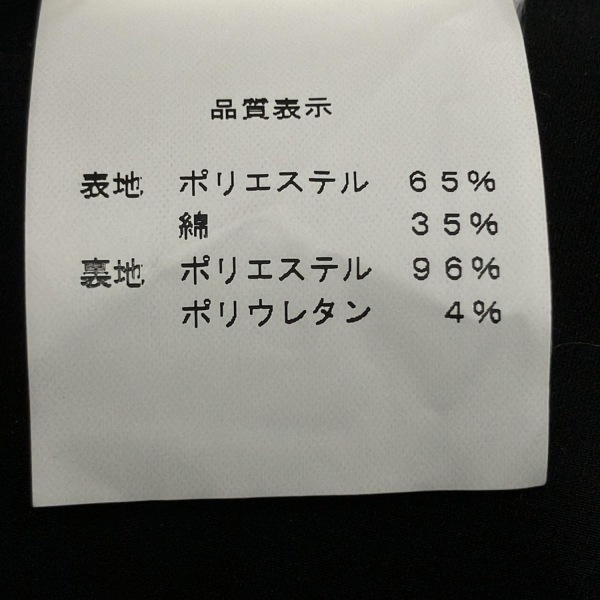 品質表示
表地 ポリエステル 65%
綿 35%
裏地 ポリエステル 96%
ポリウレタン 4%